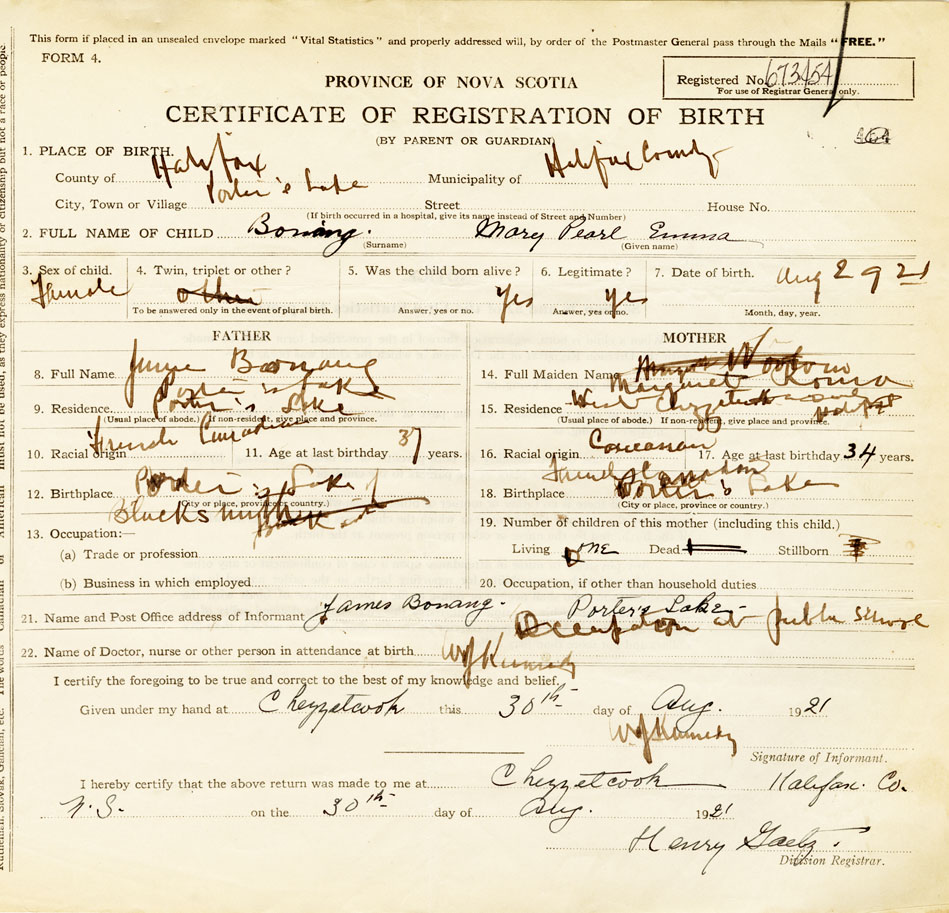 This form if placed in an unsealed envelope marked "Vital Statistics" and properly addressed will, by order of the Postmaster General pass through the Mails "FREE."
FORM 4.
PROVINCE OF NOVA SCOTIA
Registered No. 673454
For use of Registrar General only.
CERTIFICATE OF REGISTRATION OF BIRTH
(BY PARENT OR GUARDIAN)
1. PLACE OF BIRTH.
County of Halifax Municipality of Halifax County
City, Town or Village Porter's Lake Street House No.
(If birth occurred in a hospital, give its name instead of Street and Number)
2. FULL NAME OF CHILD Bonang. Mary Pearl Emma
(Surname) (Given name)
3. Sex of child. 4. Twin, triplet or other? 5. Was the child born alive? 6. Legitimate? 7. Date of birth. Aug 29 21
Female other Yes yes
To be answered only in the event of plural birth. Answer, yes or no. Answer, yes or no. Month, day, year.
FATHER MOTHER
8. Full Name Bonang 14. Full Maiden Name Margaret
Porter's Lake
9. Residence Porter's Lake 15. Residence West Chezzetcook
(Usual place of abode.) If non-resident, give place and province. (Usual place of abode.) If non-resident, give place and province.
10. Racial origin French Canadian 11. Age at last birthday 37 years. 16. Racial origin 17. Age at last birthday 34 years.
12. Birthplace Porter's Lake 18. Birthplace Porter's Lake
(City or place, province or country.) (City or place, province or country.)
13. Occupation:— Blacksmith 19. Number of children of this mother (including this child.)
(a) Trade or profession Living one Dead Stillborn
(b) Business in which employed 20. Occupation, if other than household duties
21. Name and Post Office address of Informant James Bonang. Porter's Lake
Occupation at public school
22. Name of Doctor, nurse or other person in attendance at birth. W J Kennedy
I certify the foregoing to be true and correct to the best of my knowledge and belief.
Given under my hand at Chezzetcook this 30th day of Aug. 1921
W J Kennedy
Signature of Informant.
I hereby certify that the above return was made to me at Chezzetcook Halifax. Co.
N.S. on the 30th day of Aug. 1921
Henry Gaetz.
Division Registrar.